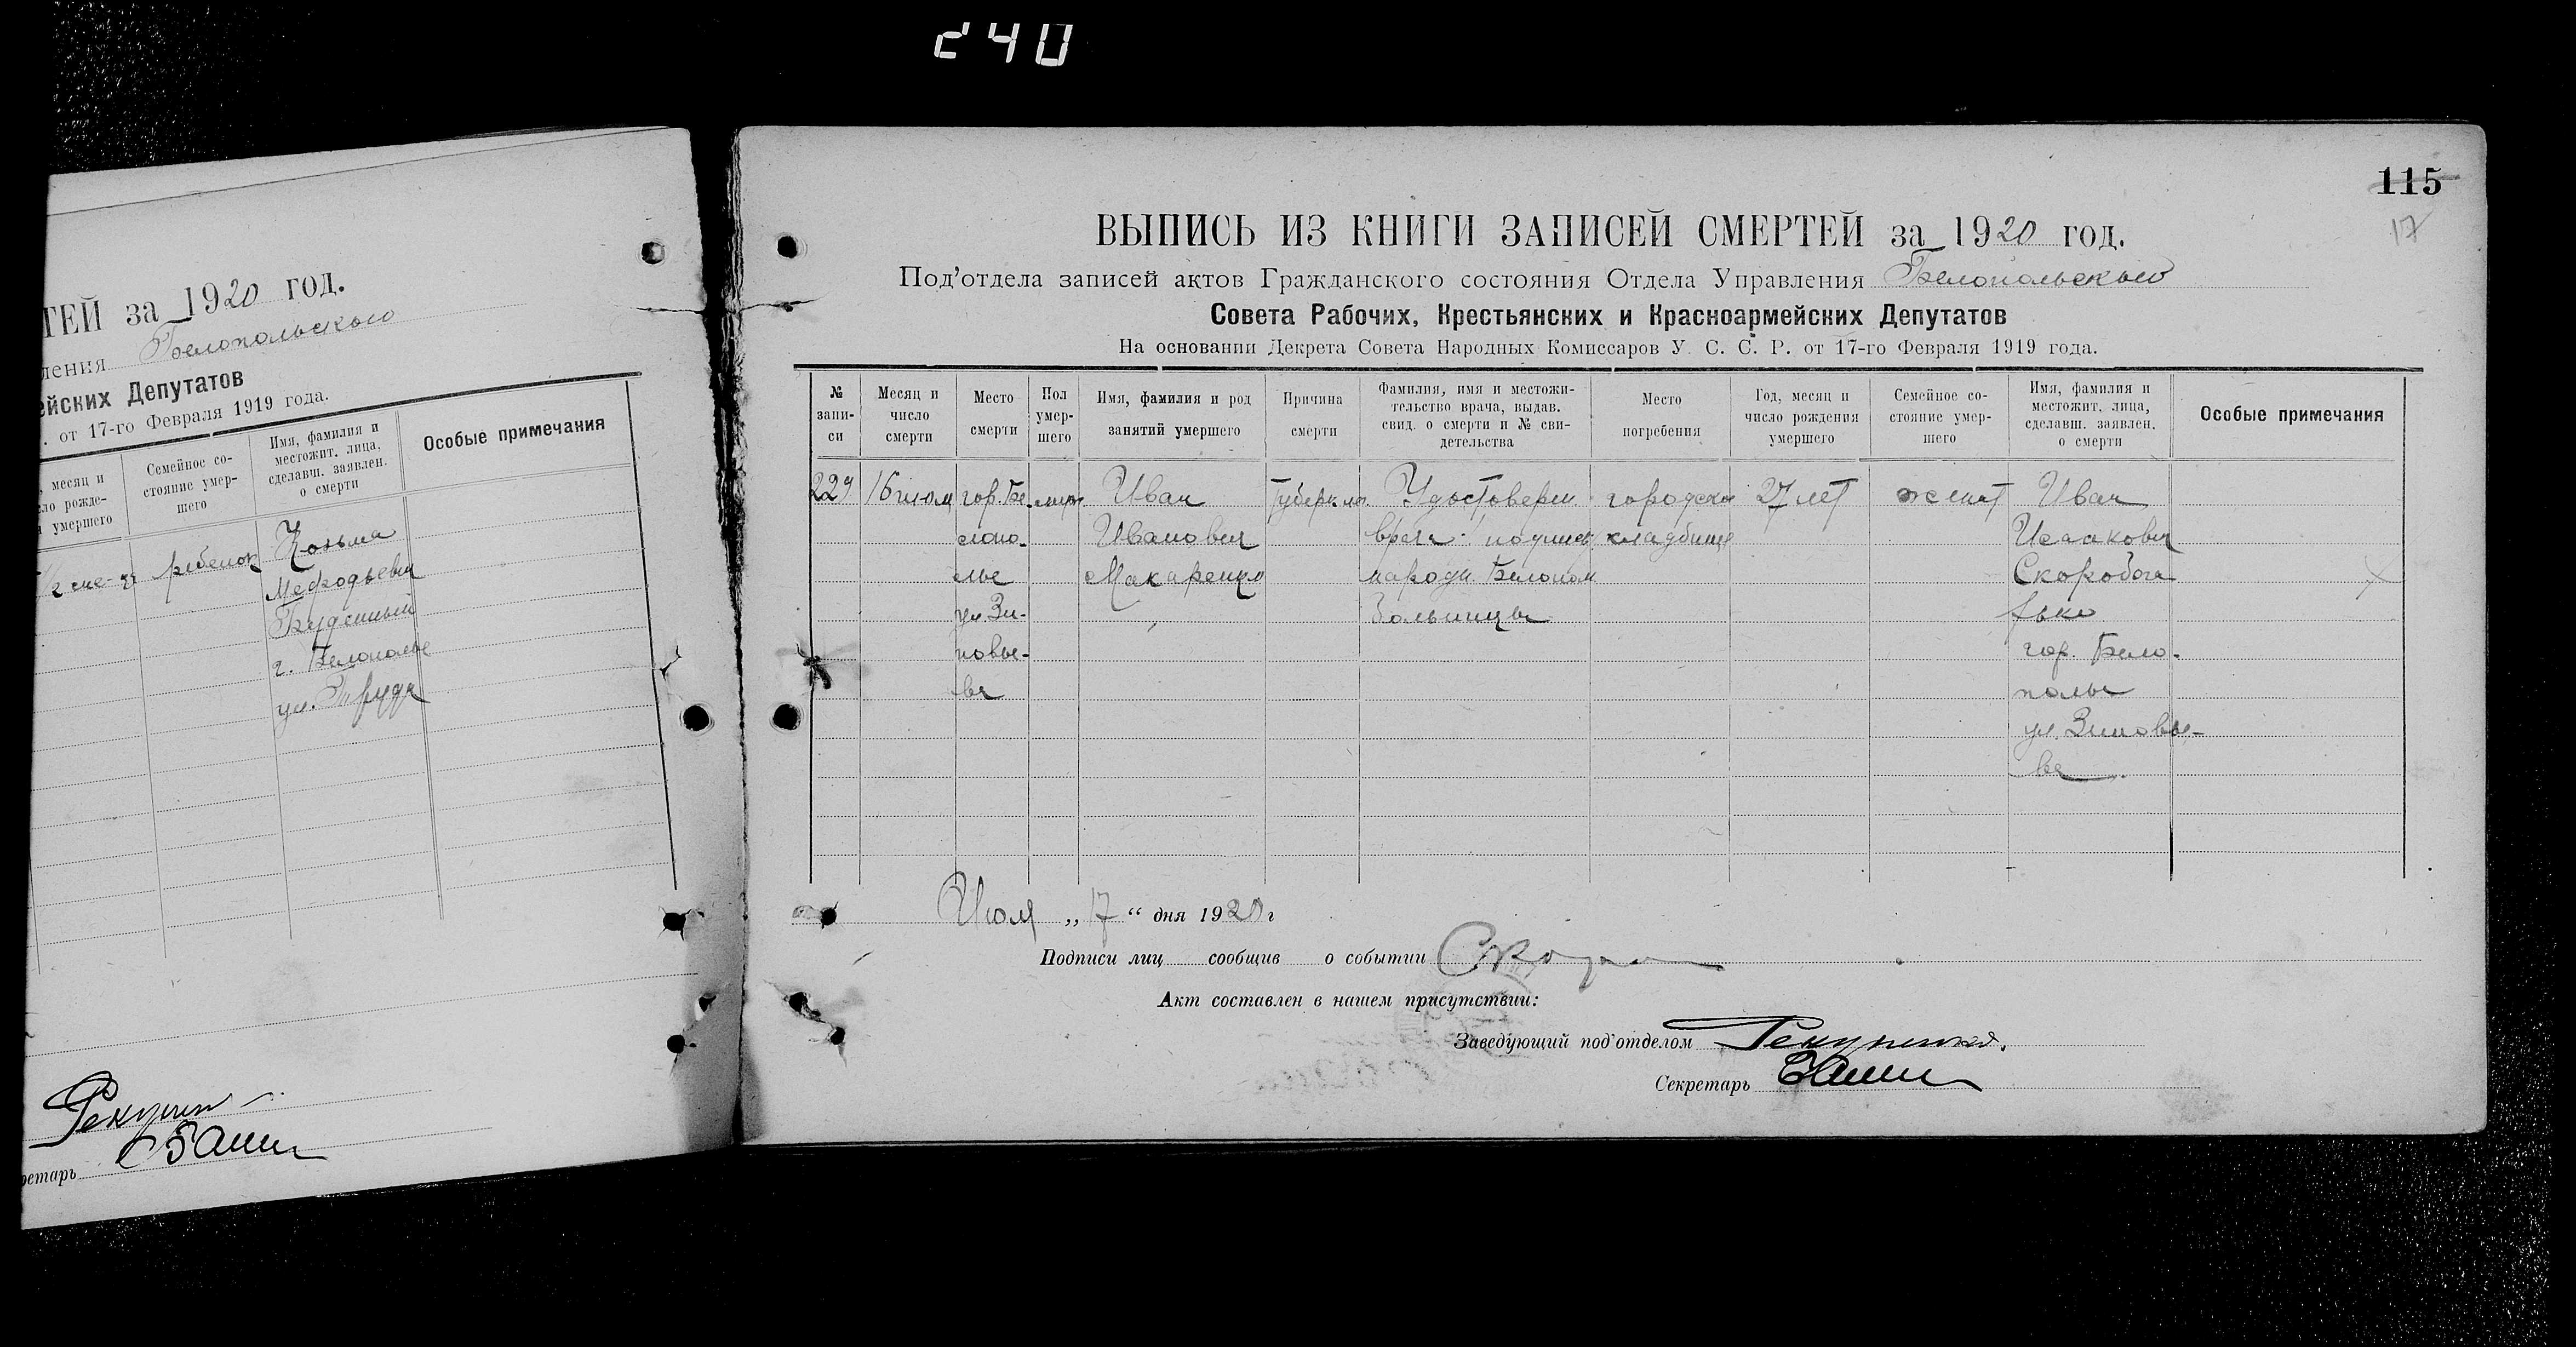 240
ТЕЙ за 1920 год.
ления Белопольского
ейских Депутатов
. от 17-го Февраля 1919 года.
, месяц и
ло рожде-
я умершего
Семейное со-
стояние умер-
шего
Имя, фамилия и
местожит. лица,
сделавш. заявлен.
о смерти
Особые примечания
ребенок
Козьма
Мефодьевич
Буденный
г. Белополье
ул.
ретарь
115
17
ВЫПИСЬ ИЗ КНИГИ ЗАПИСЕЙ СМЕРТЕЙ за 1920 год.
Под’отдела записей актов Гражданского состояния Отдела Управления Белопольского
Совета Рабочих, Крестьянских и Красноармейских Депутатов
На основании Декрета Совета Народных Комиссаров У. С. С. Р. от 17-го Февраля 1919 года.
№
запи-
си
Месяц и
число
смерти
Место
смерти
Пол
умер-
шего
Имя, фамилия и род
занятий умершего
Причина
смерти
Фамилия, имя и местожи-
тельство врача, выдав.
свид. о смерти и № сви-
детельства
Место
погребения
Год, месяц и
число рождения
умершего
Семейное со-
стояние умер-
шего
Имя, фамилия и
местожит. лица,
сделавш. заявлен.
о смерти
Особые примечания
229
16 июля
гор. Бе-
лопо-
лье
ул. Зи-
новье-
ва
Иван
Иванович
Макаренко
Туберкул.
Удостоверен.
врача
народн. Белопол
больницы
городское
кладбище
27 лет
женат
Иван
Исаакович
Скоробога
тько
гор. Бело-
полье
ул. Зиновье-
ва
Июля „ 17 “ дня 1920 г
Подписи лиц сообщив о событии
Акт составлен в нашем присутствии:
Заведующий под’отделом
Секретарь